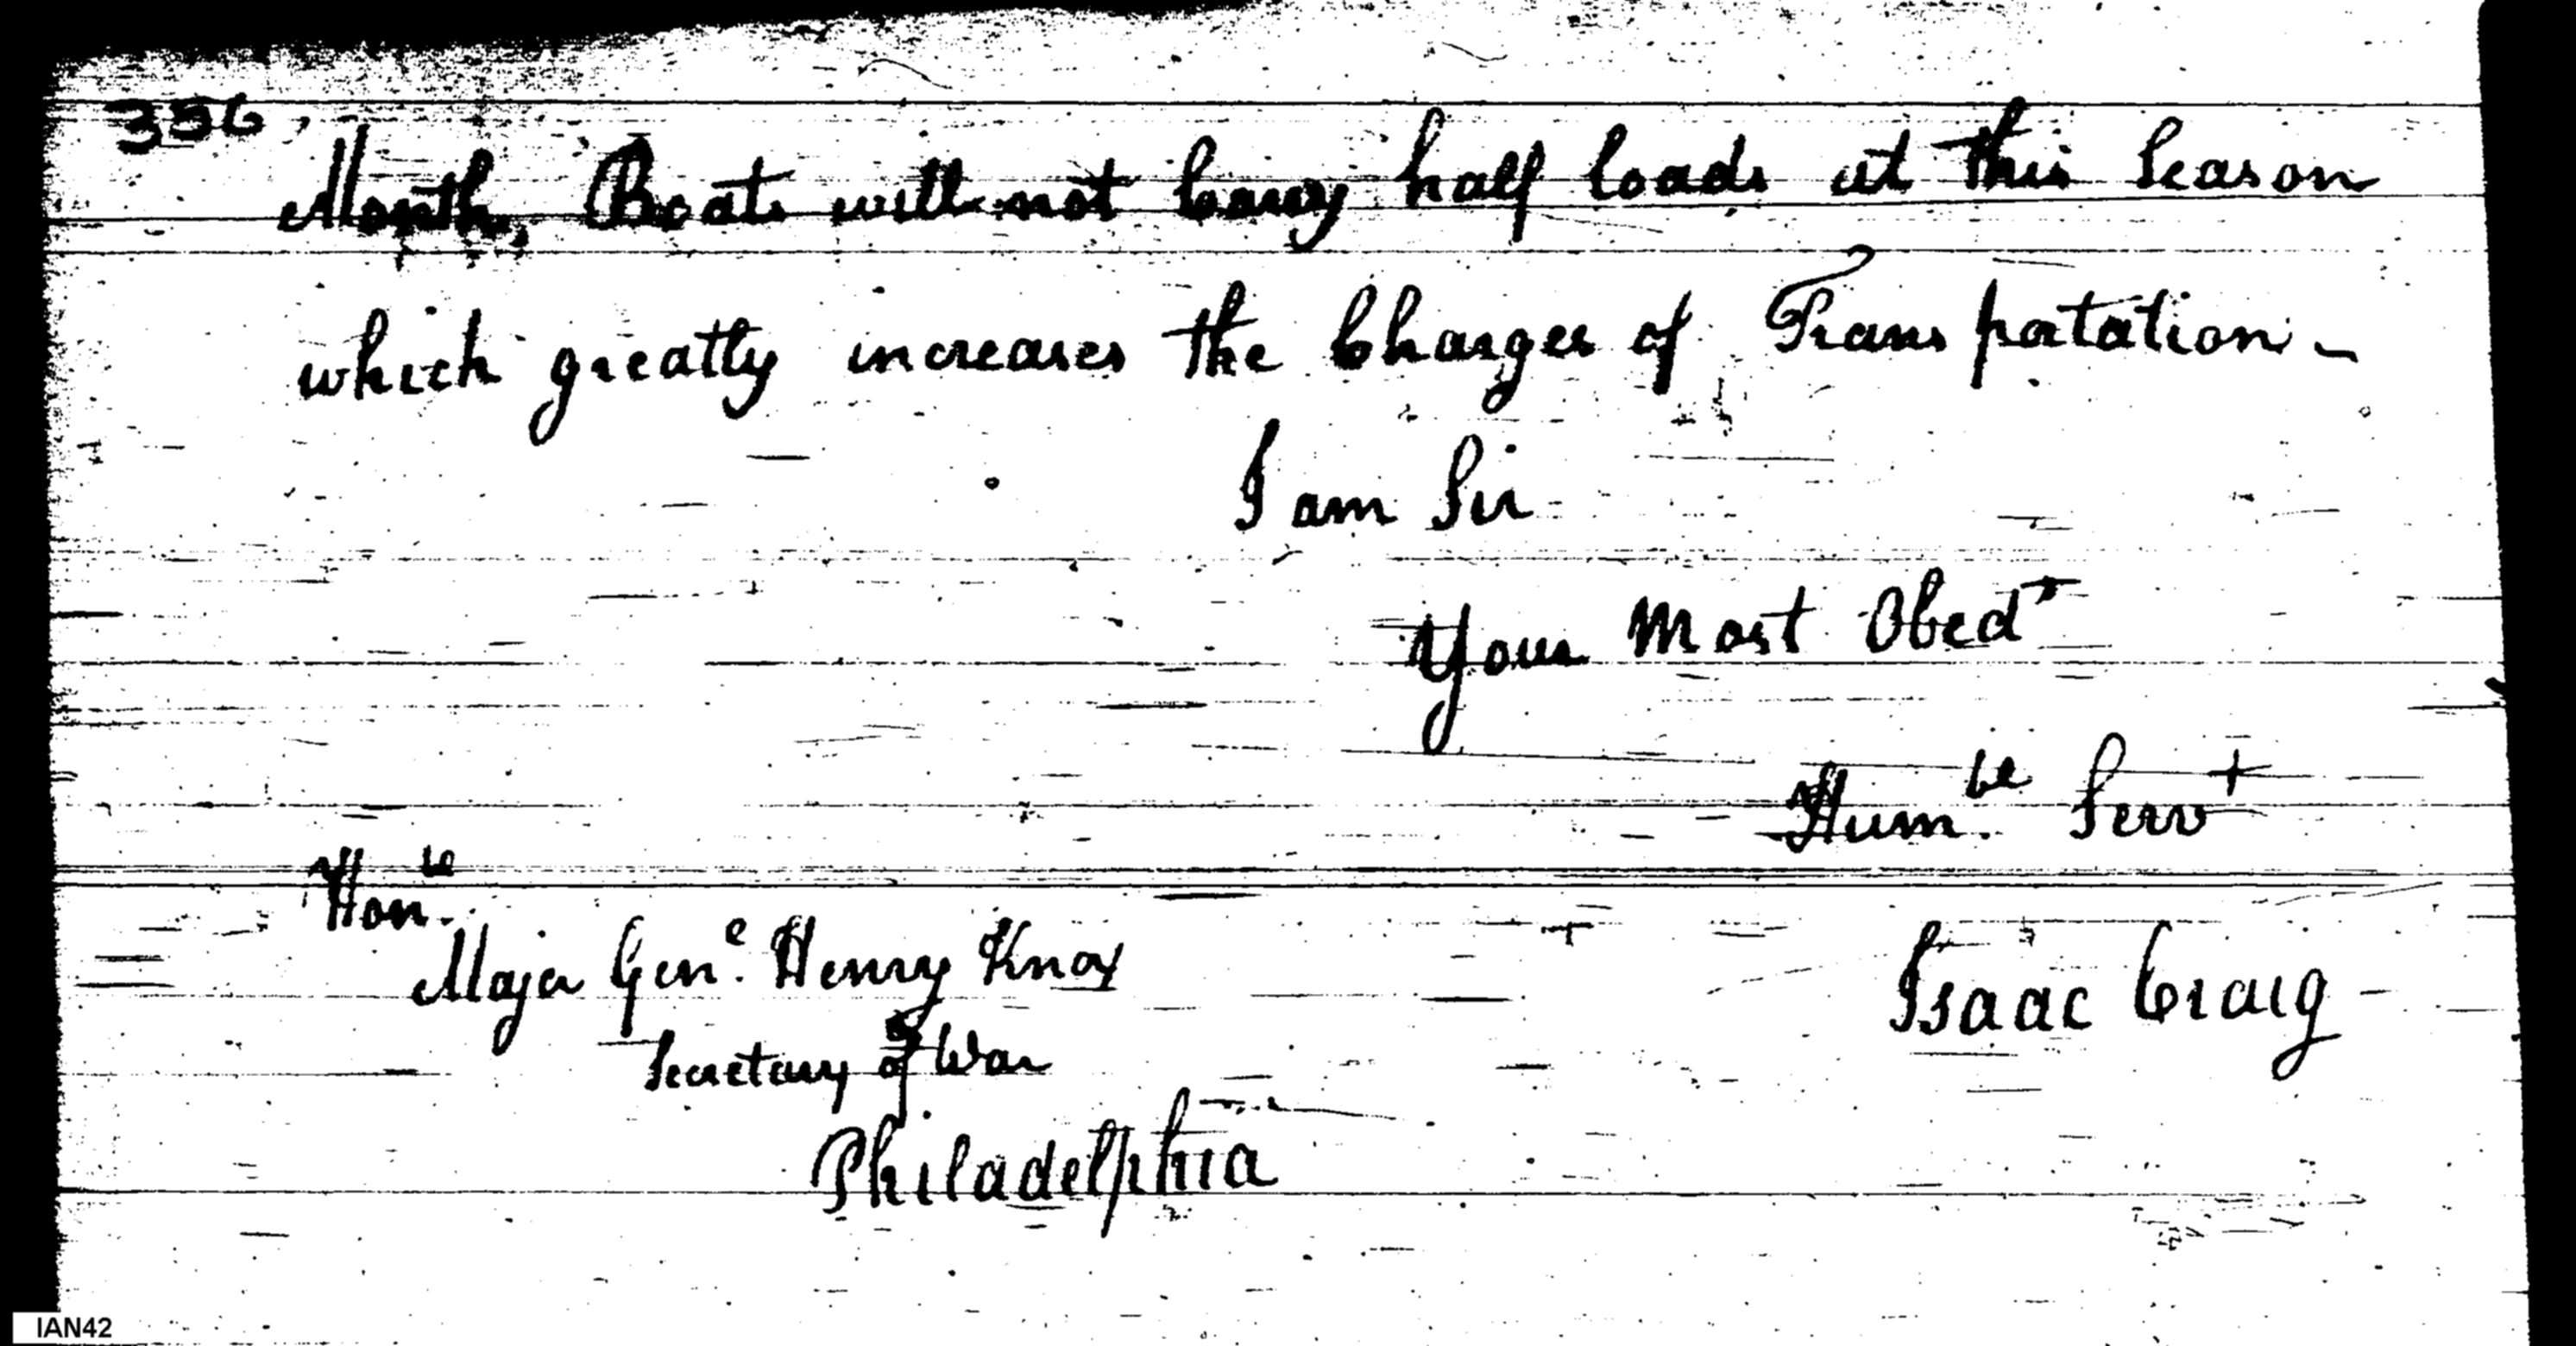 356
Month, Boats will not Carry half loads at this Season
which greatly increases the Charges of Transportation -
I am Sir
Your Most Obedt
Humble Servt
Honble
Major Gene. Henry Knox
Secretary of War
Philadelphia
Isaac Craig
IAN42